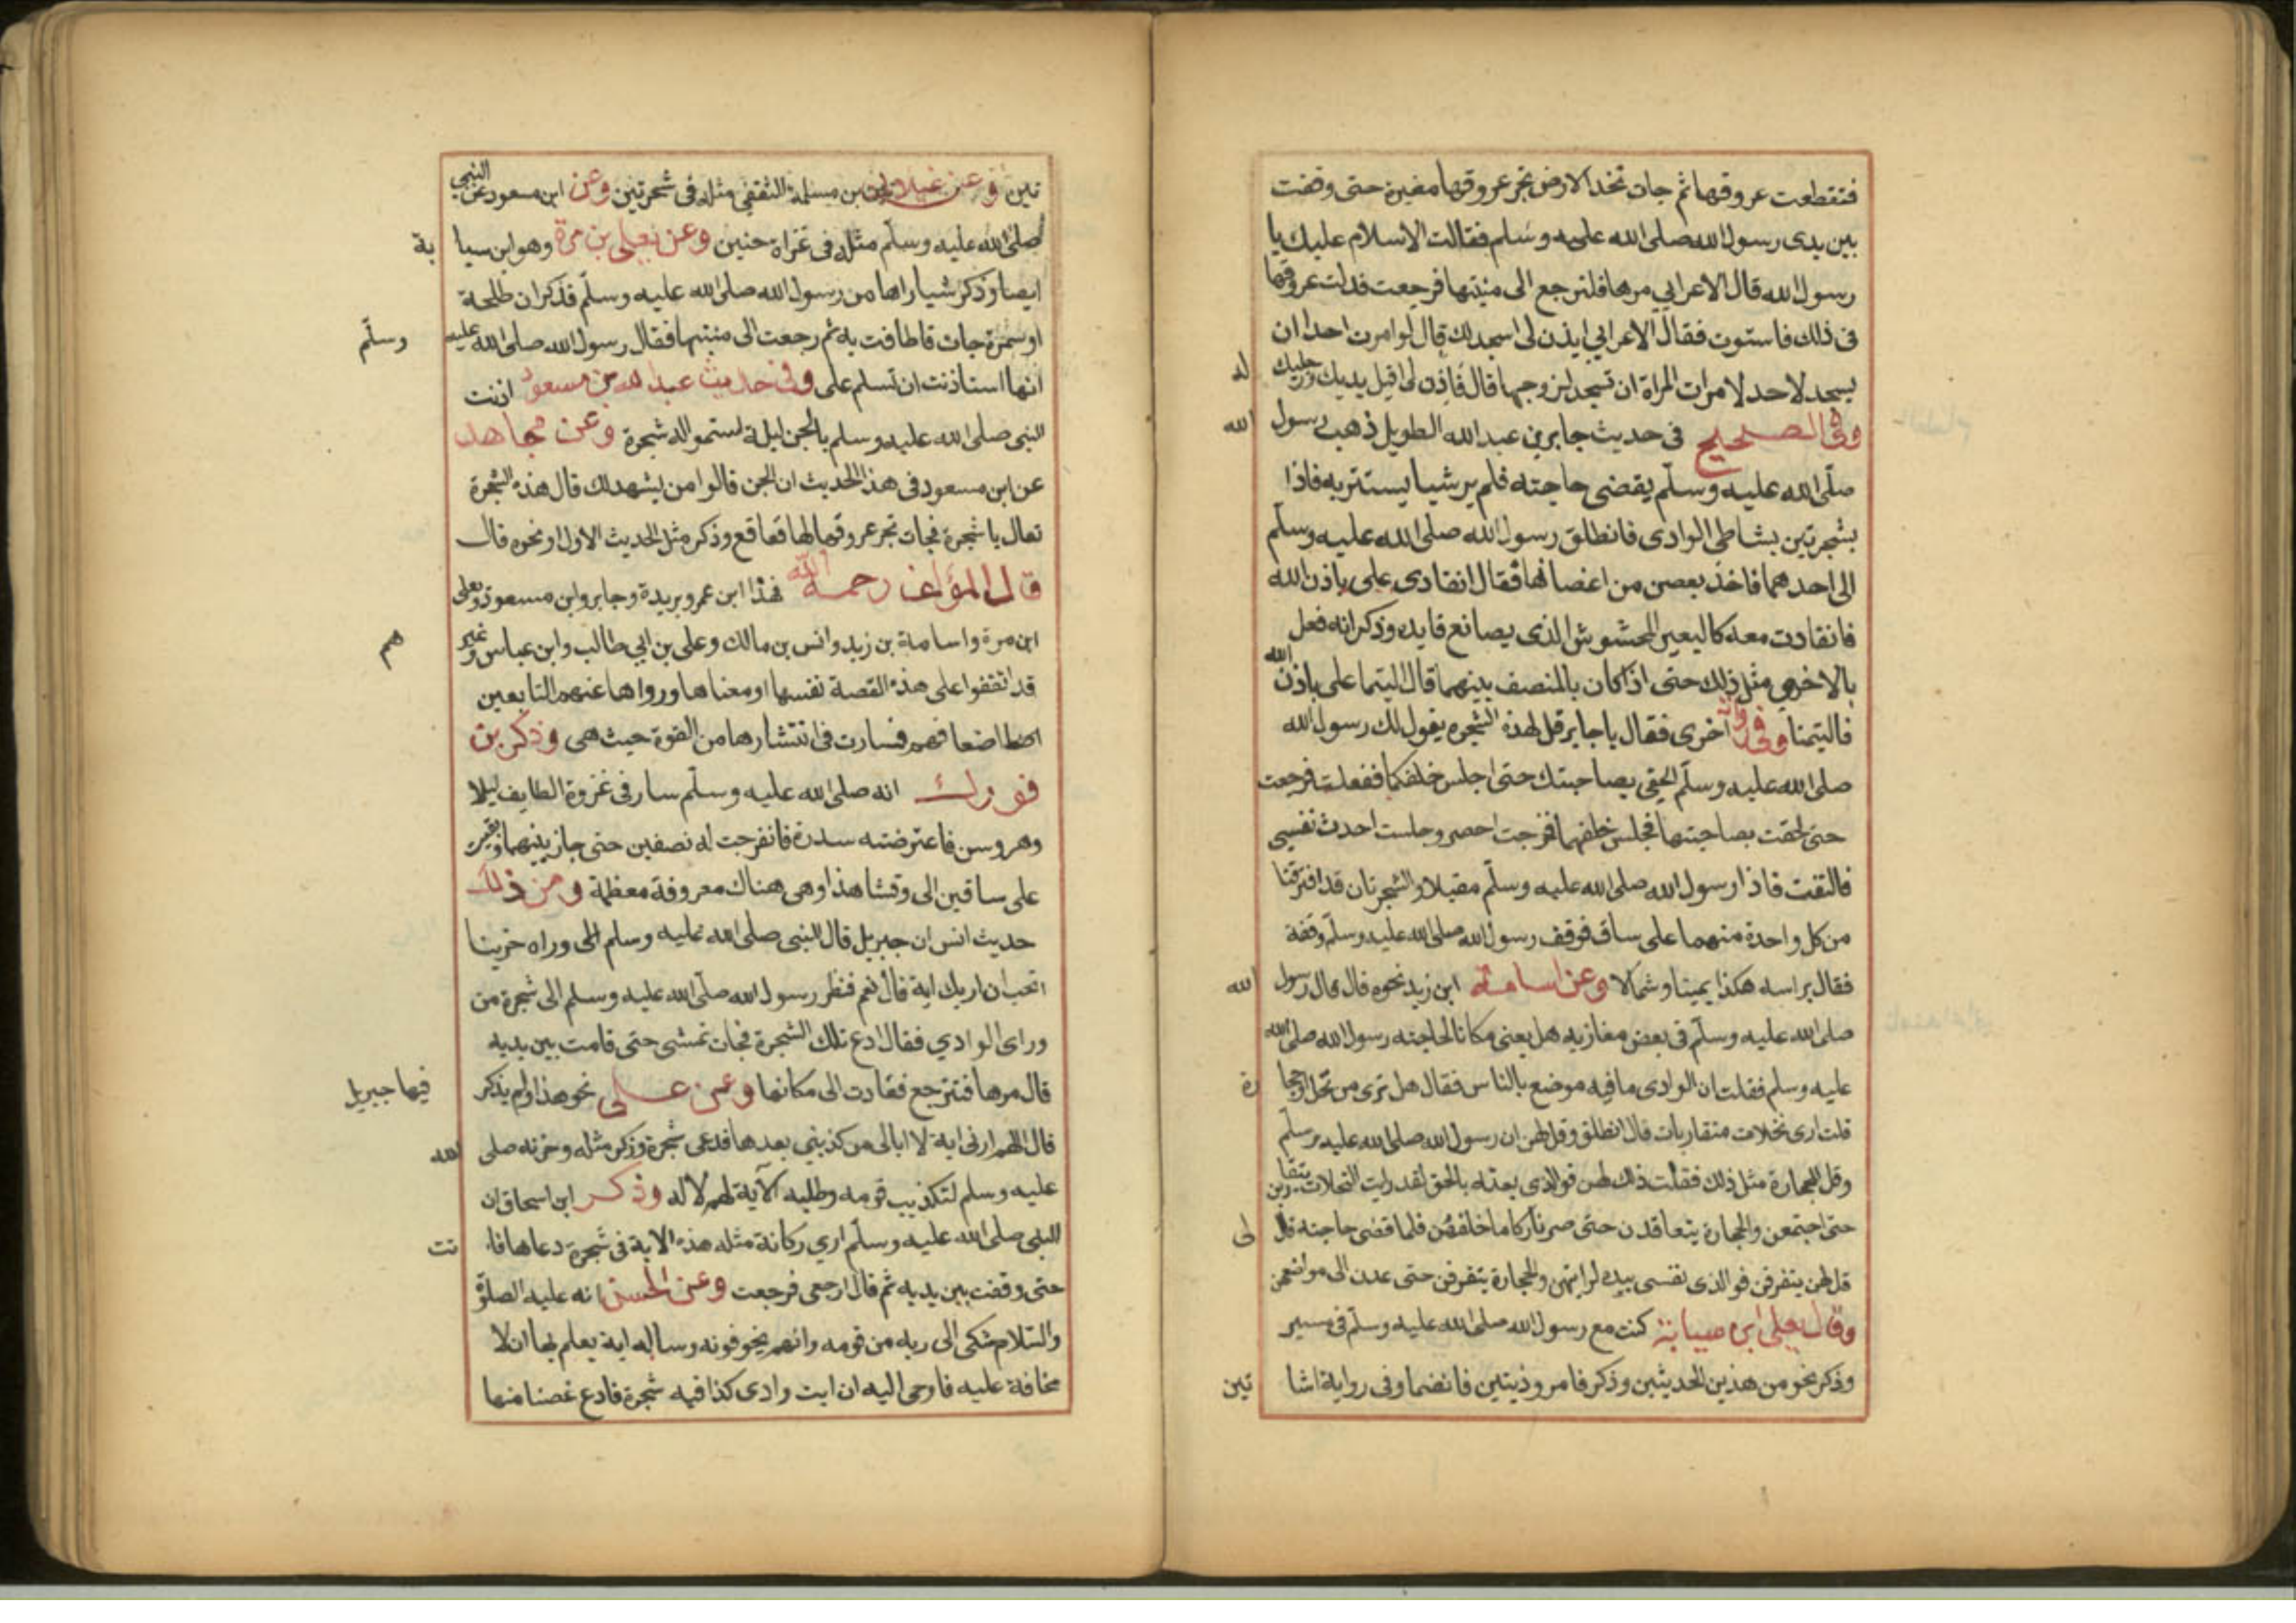 فتقطعت عروقها ثم جات تخد الارض تجر عروقها مغيرة حتى وقفت
بين يدى رسول الله صلى الله عليه وسلم فقالت الاسلام عليك يا
رسول الله قال الاعرابي مرها فلترجع الى منبتها فرجعت فدلت عروقها
فى ذلك فاستوت فقال الاعرابي ايذن لى اسجد لك قال لو امرت احدا ان
يسجد لاحد لامرات المراة ان تسجد لزوجها قال فاذن لى اقبل يديك ورجليك له
وفى الصحيح فى حديث جابر بن عبد الله الطويل ذهب رسول الله
صلى الله عليه وسلم يقضى حاجته فلم ير شيا يستتر به فاذا
بشجرتين بشاطى الوادى فانطلق رسول الله صلى الله عليه وسلم
الى احدهما فاخذ بغصن من اغصانها فقال انقادى على باذن الله
فانقادت معه كالبعير المحشوش الذى يصانع قايده وذكر انه فعل
بالاخرى مثل ذلك حتى اذا كان بالمنصف بينهما قال التيما على باذن الله
فالتيمتا وفى رواية اخرى فقال يا جابر قل لهذه الشجرة يقول لك رسول الله
صلى الله عليه وسلم الحقى بصاحبتك حتى اجلس خلفكما ففعلت فرجعت
حتى لحقت بصاحبتها فجلس خلفهما فخرجت احصر وجلست احدث نفسى
فالتفت فاذا رسول الله صلى الله عليه وسلم مقبلا والشجرتان قد افترقتا
من كل واحدة منهما على ساق فوقف رسول الله صلى الله عليه وسلم وقفة
فقال براسه هكذا يمينا وشمالا وعن اسامة ابن زيد نحوه قال قال رسول الله
صلى الله عليه وسلم فى بعض مغازيه هل يعنى مكانا لحاجته رسول الله صلى الله
عليه وسلم فقلت ان الوادى ما فيه موضع بالناس فقال هل ترى من نخل او حجا رة
قلت ارى نخلات متقاربات قال انطلق وقل لهن ان رسول الله صلى الله عليه وسلم
وقل للحجارة مثل ذلك فقلت ذلك لهن فوالذى بعثه بالحق لقد رايت النخلات يتقاربن
حتى اجتمعن والحجارة يتعاقدن حتى صرنا ركاما خلفهن فلما قضى حاجته قال لى
قل لهن يتفرقن فوالذى نفسى بيده لرايتهن والحجارة يتفرقن حتى عدن الى مواضعهن
وقال يعلى ابن سيابة كنت مع رسول الله صلى الله عليه وسلم فى مسير
وذكر نحو من هذين الحديثين وذكر فامر وذيتين فانضما وفى رواية اشا تين
تين وعن غيلان بن مسلمة الثقفى مثله فى شجرتين وعن ابن مسعود عن النبي
صلى الله عليه وسلم مثله فى غزاة حنين وعن يعلى بن مرة وهو ابن سيا بة
ايضا وذكر شيا راها من رسول الله صلى الله عليه وسلم فذكر ان طلحة
او سمرة جات فاطافت به ثم رجعت الى منبتها فقال رسول الله صلى الله عليه وسلم
انها استاذنت ان تسلم على وفى حديث عبد الله بن مسعود اذنت
النبى صلى الله عليه وسلم بالجن ليلة استمعوا له شجرة وعن مجاهد
عن ابن مسعود فى هذا الحديث ان الجن قالوا من يشهد لك قال هذه الشجرة
تعال يا شجرة فجات تجر عروقها لها قعاقع وذكر مثل الحديث الاول او نحوه قال
قال المؤلف رحمه الله فهذا ابن عمر وبريدة وجابر وابن مسعود ويعلى
ابن مرة واسامة بن زيد وانس بن مالك وعلى بن ابي طالب وابن عباس وغير هم
قد اتفقوا على هذه القصة نفسها او معناها ورواها عنهم التابعين
اضعافهم فسارت فى انتشارها من القوة حيث هى وذكر بن
فورك انه صلى الله عليه وسلم سار فى غزوة الطايف ليلا
وهو وسن فاعترضته سدرة فانفرجت له نصفين حتى جاز بينهما وبقيت
على ساقين الى وقتنا هذا وهى هناك معروفة معظمة ومن ذلك
حديث انس ان جبريل قال للنبى صلى الله عليه وسلم وراه حزينا
اتحب ان اريك اية قال نعم فنظر رسول الله صلى الله عليه وسلم الى شجرة من
وراى الوادي فقال ادع تلك الشجرة فجات تمشى حتى قامت بين يديه
قال مرها فترجع فعادت الى مكانها وعن على نحو هذا ولم يذكر فيها جبريل
قال اللهم ارنى اية لا ابالى من كذبنى بعدها فدعى شجرة وذكر مثله وحزنه صلى الله
عليه وسلم لتكذيب قومه وطلبه الآية لهم لا له وذكر ابن اسحاق ان
النبى صلى الله عليه وسلم اري ركانة مثله هذه الاية فى شجرة دعاها فا تت
حتى وقفت بين يديه ثم قال ارجعى فرجعت وعن الحسن انه عليه الصلوة
والسلام شكى الى ربه من قومه وانهم يخوفونه وساله اية يعلم بها ان لا
مخافة عليه فاوحى اليه ان ايت وادى كذا فيه شجرة فادع غصنا منها